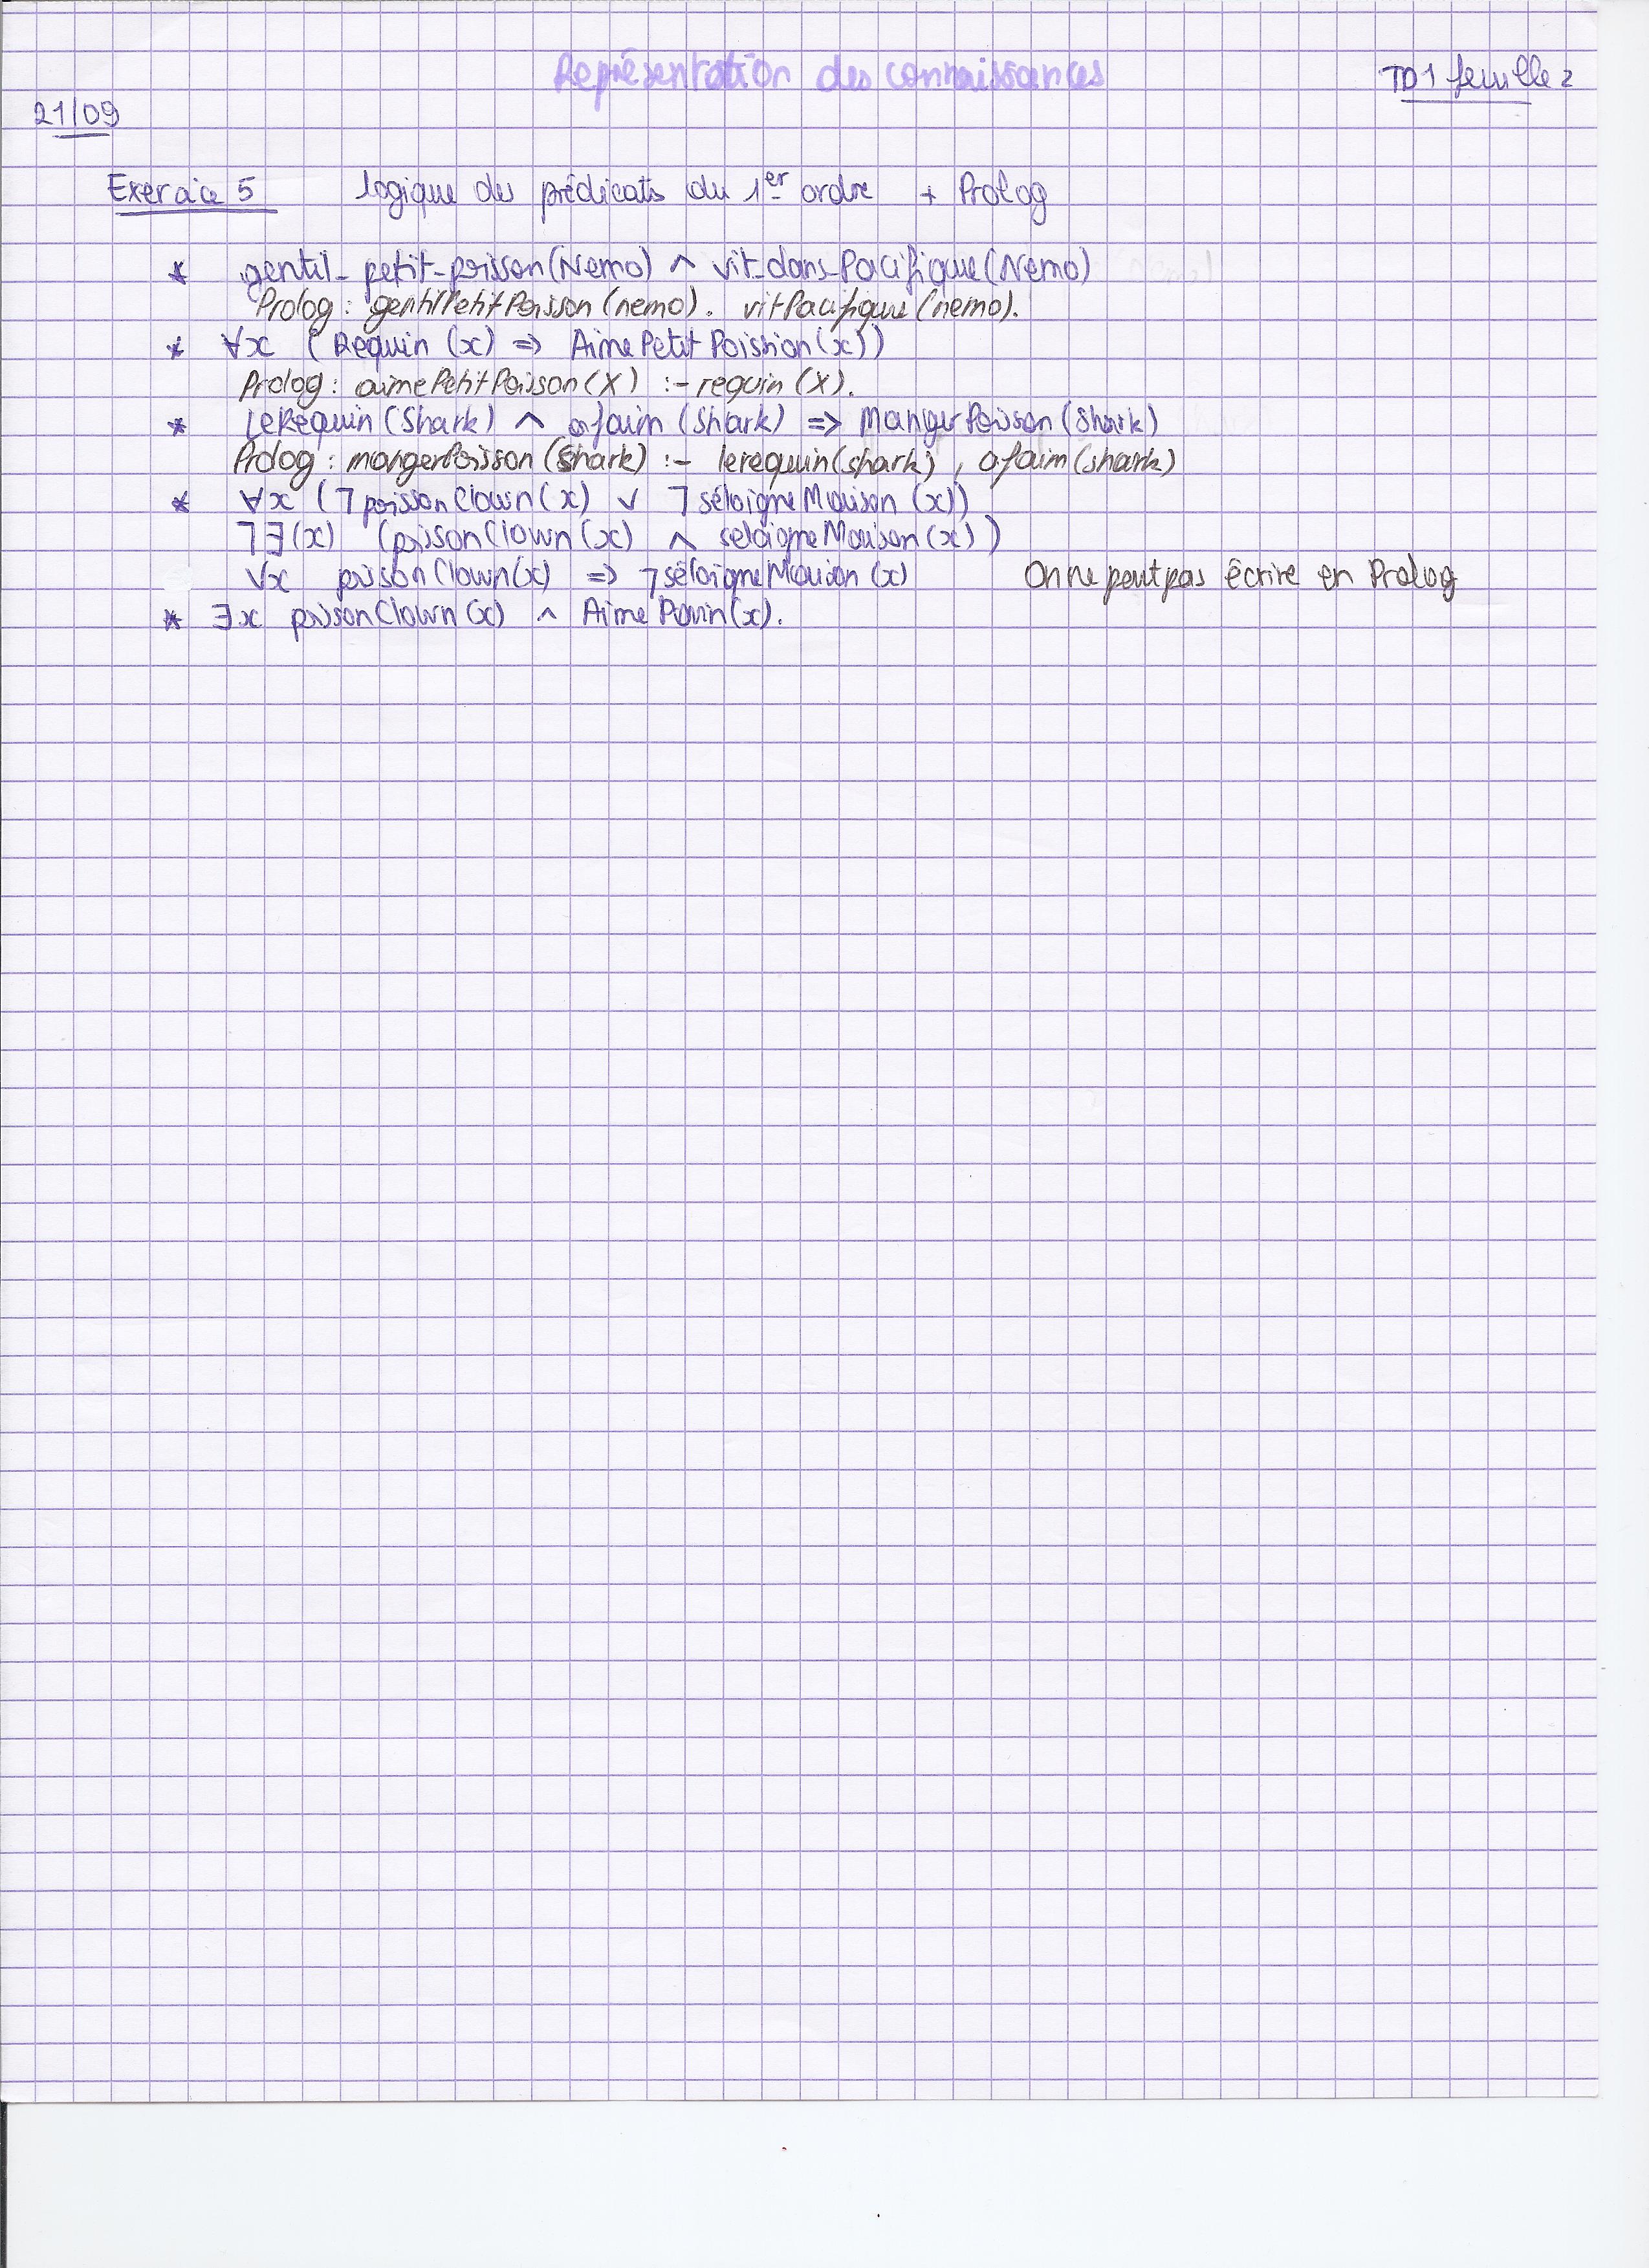 Représentation des connaissances
TD1 feuille 2
21/09
Exercice 5 logique des prédicats du 1er ordre + Prolog
* gentil-petit-poisson(Nemo) ∧ vit-dans-Pacifique(Nemo)
Prolog : gentilPetitPoisson(nemo). vitPacifique(nemo).
* ∀x (Requin (x) => AimePetitPoission(x))
Prolog : aimePetitPoisson(X) :- requin(X).
* LeRequin(Shark) ∧ afaim(Shark) => MangerPoisson(Shark)
Prolog : mangerPoisson(Shark) :- lerequin(shark), afaim(shark)
* ∀x (¬poissonClown(x) ∨ ¬séloigneMaison(x))
¬∃(x) (poissonClown(x) ∧ seloigneMaison(x))
∀x poissonClown(x) => ¬séloigneMaison(x) On ne peut pas écrire en Prolog
* ∃x poissonClown(x) ∧ Aime (x).